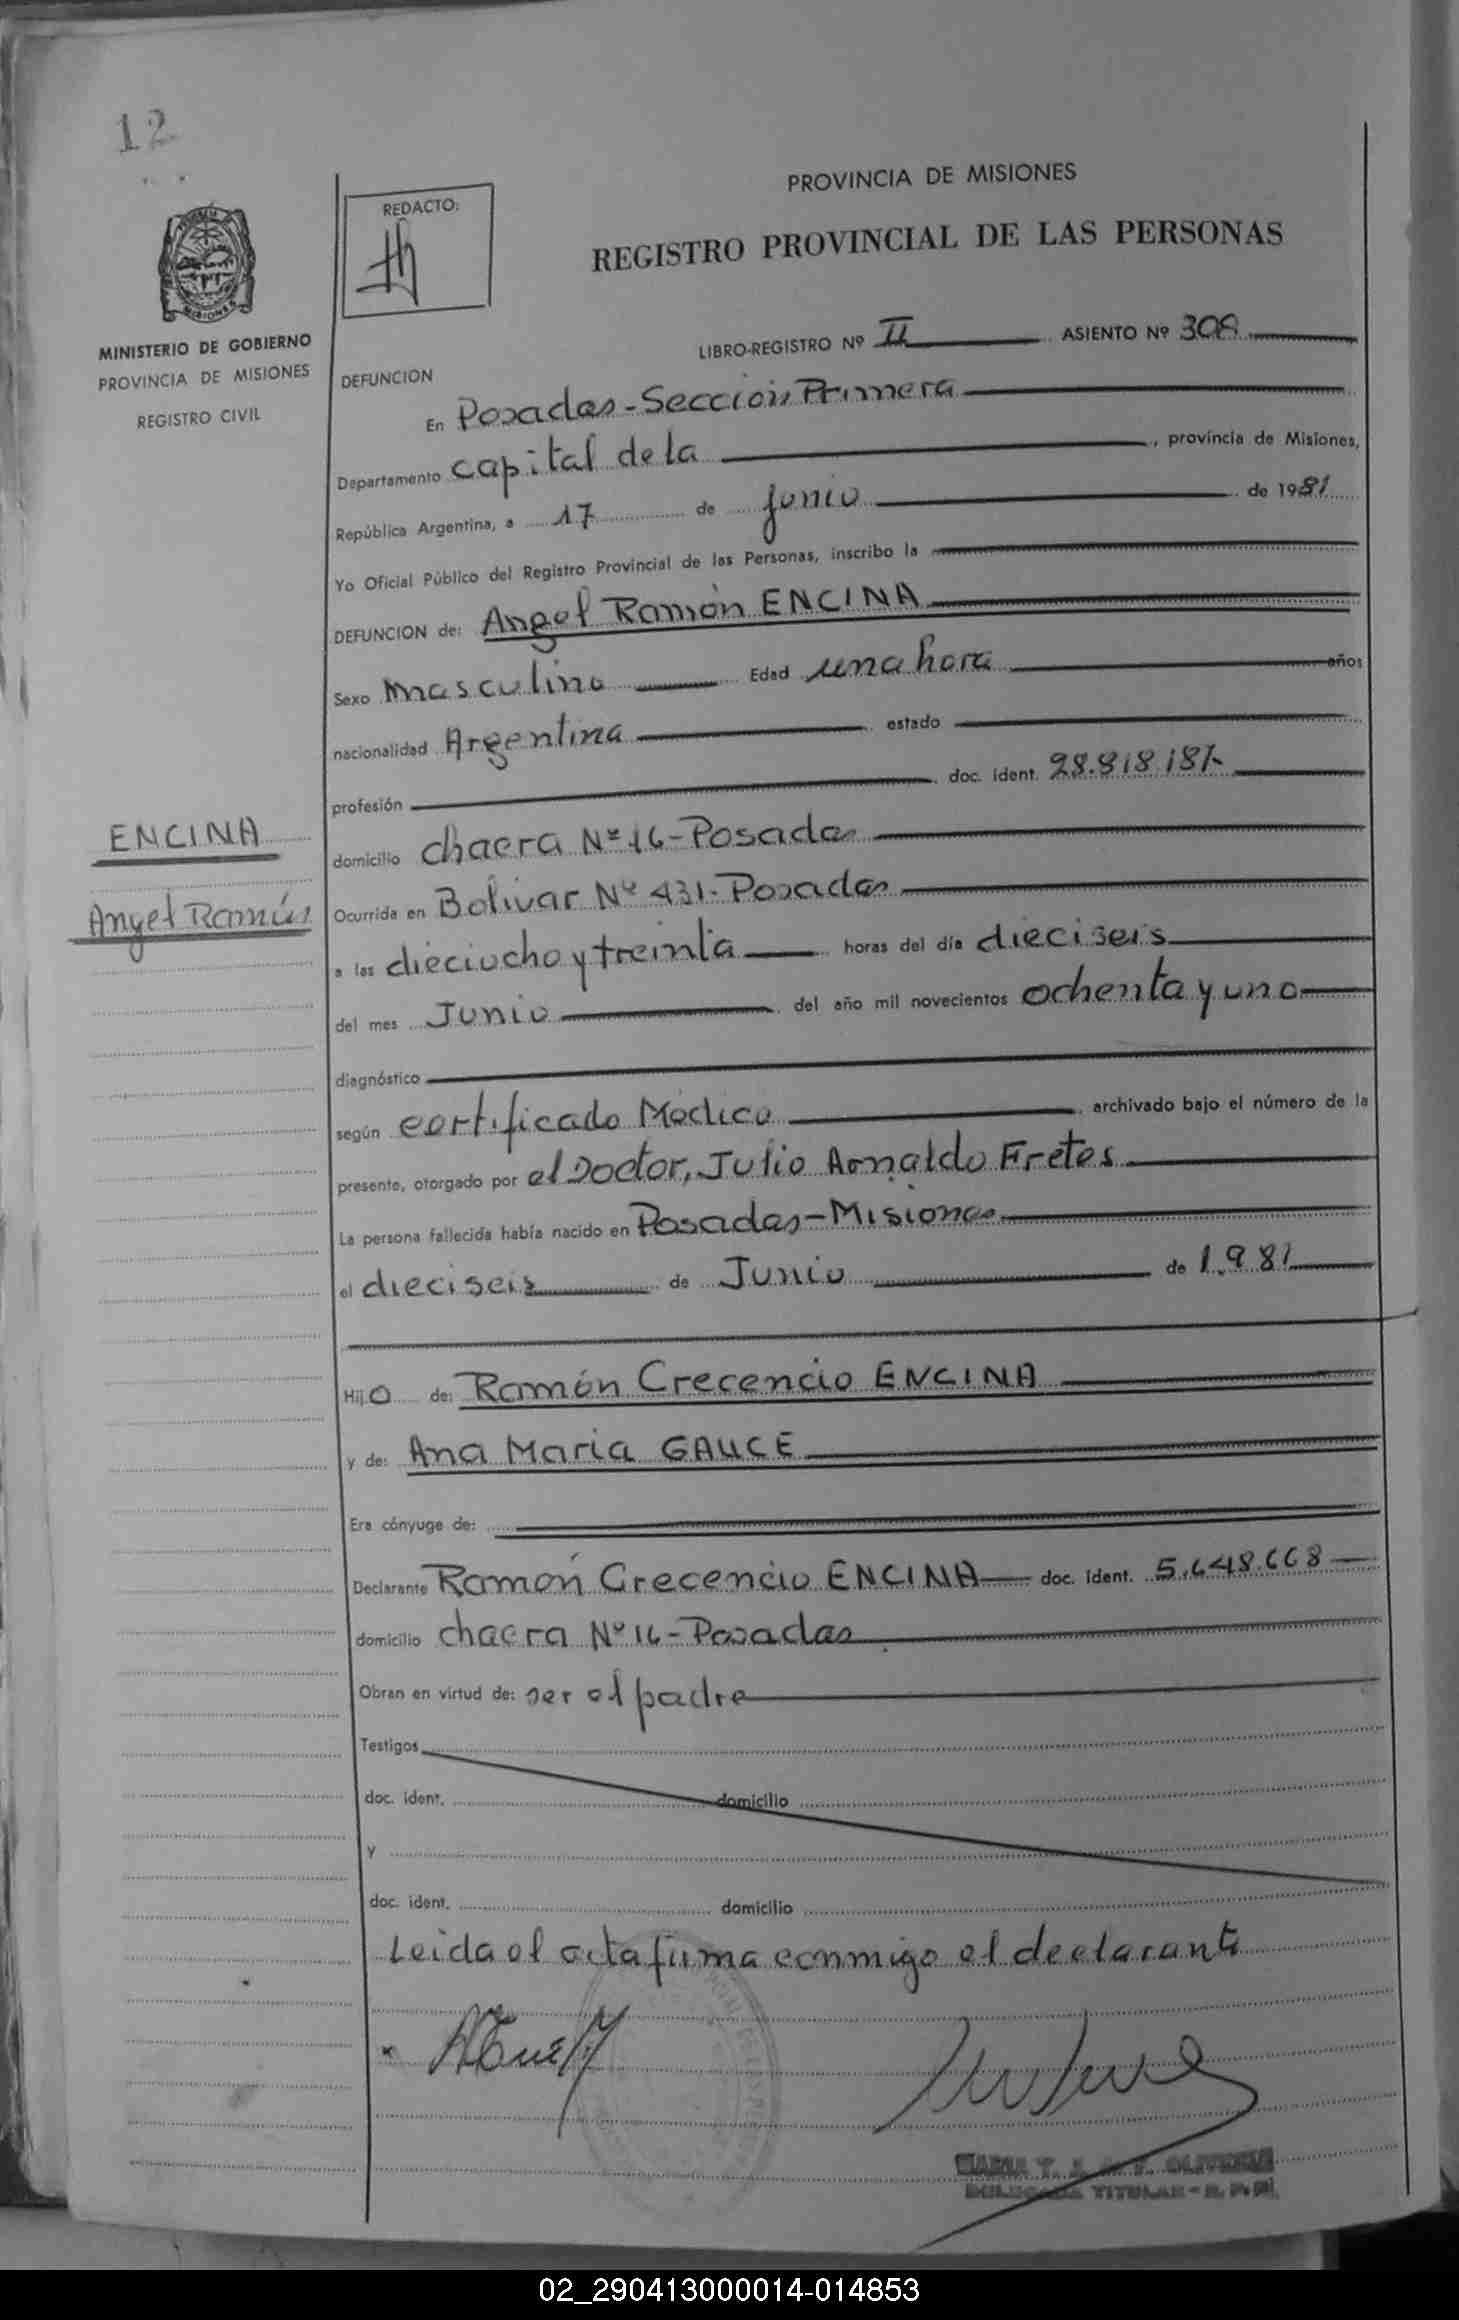 12
PROVINCIA DE MISIONES
REDACTO:
REGISTRO PROVINCIAL DE LAS PERSONAS
MISIONES
MINISTERIO DE GOBIERNO
PROVINCIA DE MISIONES
REGISTRO CIVIL
LIBRO-REGISTRO Nº II ASIENTO Nº 308
DEFUNCION
En Posadas-Sección Primera
Departamento capital de la , provincia de Misiones,
República Argentina, a 17 de junio de 1981
Yo Oficial Público del Registro Provincial de las Personas, inscribo la
DEFUNCION de: Angel Ramón ENCINA
Sexo masculino Edad una hora años
nacionalidad Argentina estado
profesión doc. ident. 28.818.181.
ENCINA
domicilio chacra Nº 16-Posadas
Angel Ramón
Ocurrida en Bolivar Nº 431-Posadas
a las dieciocho y treinta horas del día dieciseis
del mes Junio del año mil novecientos ochenta y uno
diagnóstico
según certificado Médico archivado bajo el número de la
presente, otorgado por el Doctor, Julio Arnaldo Fretes
La persona fallecida había nacido en Posadas-Misiones
el dieciseis de Junio de 1.981
Hijo de: Ramón Crecencio ENCINA
y de: Ana Maria GAUCE
Era cónyuge de:
Declarante Ramón Crecencio ENCINA doc. ident. 5.648.668
domicilio chacra Nº 16-Posadas
Obran en virtud de: ser el padre
Testigos
doc. ident. domicilio
y
doc. ident. domicilio
Leida el acta firma conmigo el declarante
MARIA T. OLIVEIRA
DELEGADA TITULAR - R. P. P.
02_290413000014-014853